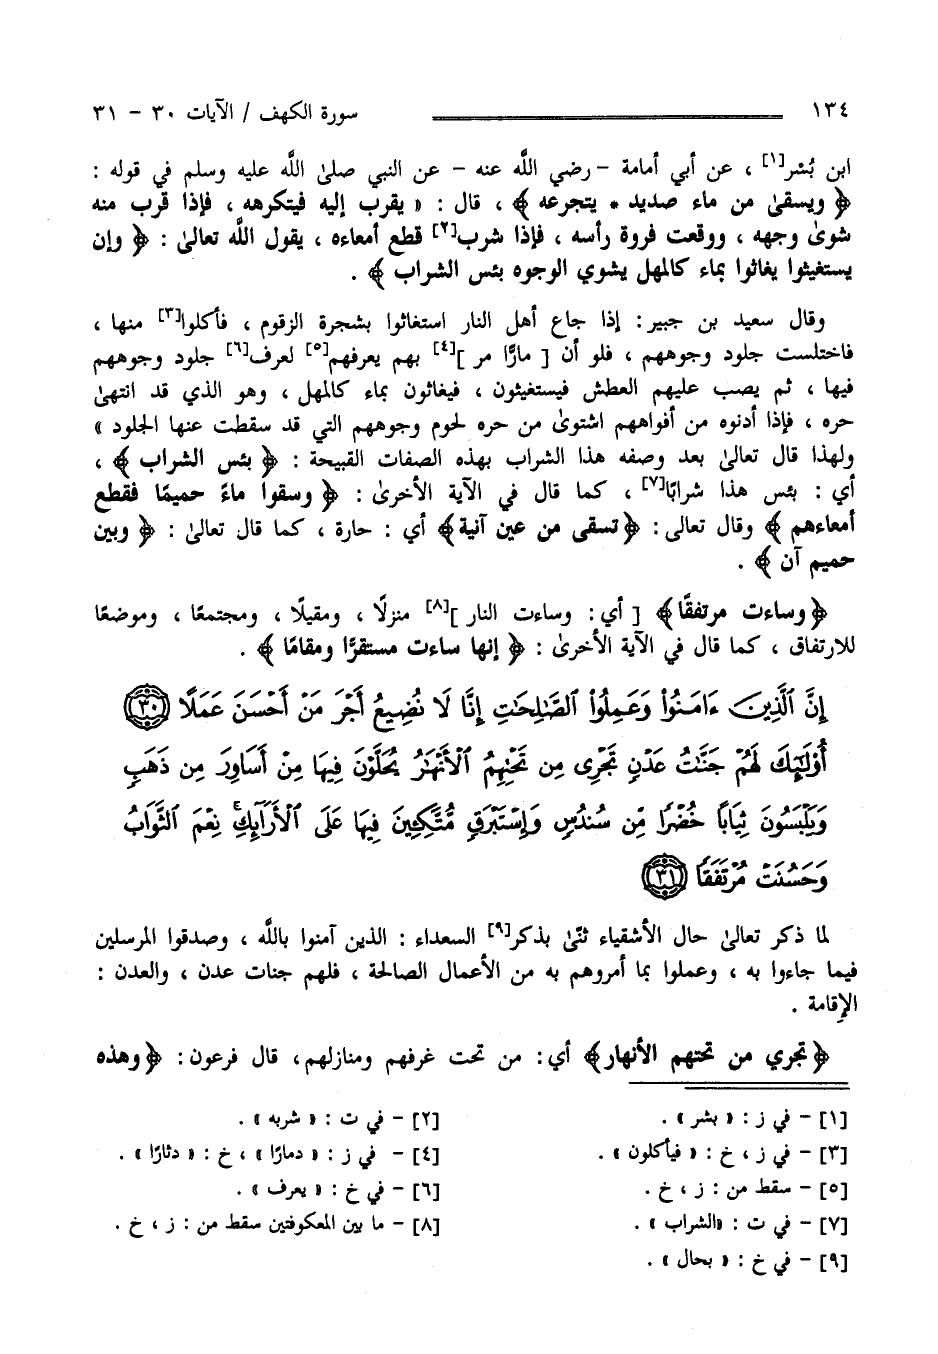 ١٣٤ سورة الكهف / الآيات ٣٠ - ٣١
ابن بُسْر[١] ، عن أبي أمامة - رضي اللَّه عنه - عن النبي صلىٰ اللَّه عليه وسلم في قوله :
﴿ ويسقىٰ من ماء صديد * يتجرعه ﴾ ، قال : « يقرب إليه فيتكرهه ، فإذا قرب منه
شوىٰ وجهه ، ووقعت فروة رأسه ، فإذا شرب[٢] قطع أمعاءه ، يقول اللَّه تعالىٰ : ﴿ وإن
يستغيثوا يغاثوا بماء كالمهل يشوي الوجوه بئس الشراب ﴾ .
وقال سعيد بن جبير : إذا جاع أهل النار استغاثوا بشجرة الزقوم ، فأكلوا[٣] منها ،
فاختلست جلود وجوههم ، فلو أن [ مارًّا مر ][٤] بهم يعرفهم[٥] لعرف[٦] جلود وجوههم
فيها ، ثم يصب عليهم العطش فيستغيثون ، فيغاثون بماء كالمهل ، وهو الذي قد انتهىٰ
حره ، فإذا أدنوه من أفواههم اشتوىٰ من حره لحوم وجوههم التي قد سقطت عنها الجلود »
ولهذا قال تعالىٰ بعد وصفه هذا الشراب بهذه الصفات القبيحة : ﴿ بئس الشراب ﴾ ،
أي : بئس هذا شرابًا[٧] ، كما قال في الآية الأخرىٰ : ﴿ وسقوا ماءً حميمًا فقطع
أمعاءهم ﴾ وقال تعالى : ﴿ تسقى من عين آنية ﴾ أي : حارة ، كما قال تعالىٰ : ﴿ وبين
حميم آن ﴾ .
﴿ وساءت مرتفقًا ﴾ [ أي : وساءت النار ][٨] منزلًا ، ومقيلًا ، ومجتمعًا ، وموضعًا
للارتفاق ، كما قال في الآية الأخرىٰ : ﴿ إنها ساءت مستقرًّا ومقامًا ﴾ .
إِنَّ ٱلَّذِينَ ءَامَنُوا۟ وَعَمِلُوا۟ ٱلصَّـٰلِحَـٰتِ إِنَّا لَا نُضِيعُ أَجْرَ مَنْ أَحْسَنَ عَمَلًا ٣٠
أُو۟لَـٰٓئِكَ لَهُمْ جَنَّـٰتُ عَدْنٍ تَجْرِى مِن تَحْتِهِمُ ٱلْأَنْهَـٰرُ يُحَلَّوْنَ فِيهَا مِنْ أَسَاوِرَ مِن ذَهَبٍ
وَيَلْبَسُونَ ثِيَابًا خُضْرًا مِّن سُندُسٍ وَإِسْتَبْرَقٍ مُّتَّكِـِٔينَ فِيهَا عَلَى ٱلْأَرَآئِكِ ۚ نِعْمَ ٱلثَّوَابُ
وَحَسُنَتْ مُرْتَفَقًا ٣١
لما ذكر تعالىٰ حال الأشقياء ثنّىٰ بذكر[٩] السعداء : الذين آمنوا باللَّه ، وصدقوا المرسلين
فيما جاءوا به ، وعملوا بما أمروهم به من الأعمال الصالحة ، فلهم جنات عدن ، والعدن :
الإقامة .
﴿ تجري من تحتهم الأنهار ﴾ أي : من تحت غرفهم ومنازلهم، قال فرعون : ﴿ وهذه
[١] - في ز : « بشر » . [٢] - في ت : « شربه » .
[٣] - في ز ، خ : « فيأكلون » . [٤] - في ز : « دمارًا » ، خ : « دثارًا » .
[٥] - سقط من : ز ، خ . [٦] - في خ : « يعرف » .
[٧] - في ت : «الشراب » . [٨] - ما بين المعكوفتين سقط من : ز ، خ .
[٩] - في خ : « بحال » .